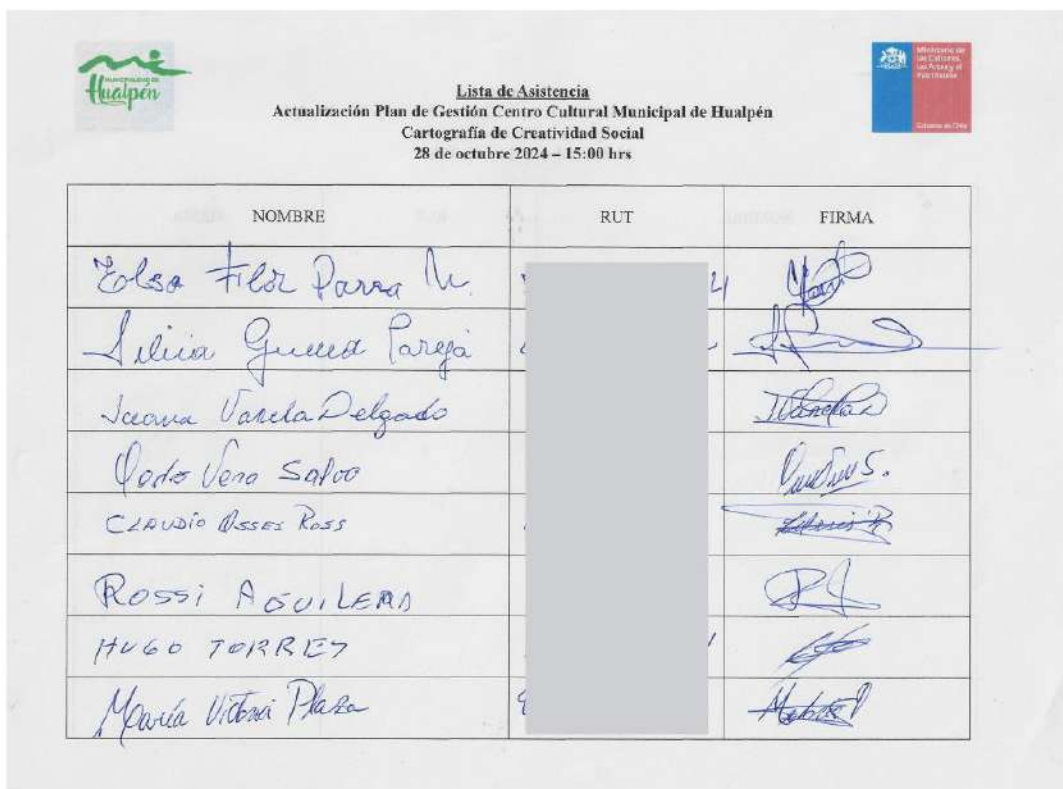 MUNICIPALIDAD DE
Hualpén
Ministerio de
las Culturas,
las Artes y el
Patrimonio
Gobierno de Chile
Lista de Asistencia
Actualización Plan de Gestión Centro Cultural Municipal de Hualpén
Cartografía de Creatividad Social
28 de octubre 2024 – 15:00 hrs
NOMBRE RUT FIRMA
Elsa Flor Parra M.
Silvia Pareja
Varela Delgado
Vera Salvo
CLAUDIO OSSES ROSS
ROSSi AGUiLERA
HUGO TORRES
María Victoria Plaza